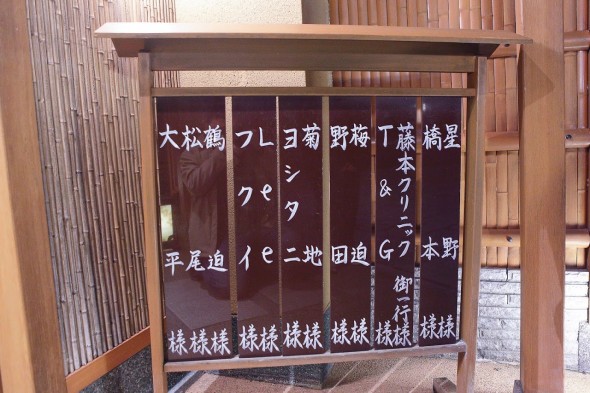 星野様
橋本様
藤本クリニック御一行様
T&G様
梅迫様
野田様
菊地様
ヨシタニ様
Lee様
フクイ様
鶴迫様
松尾様
大平様